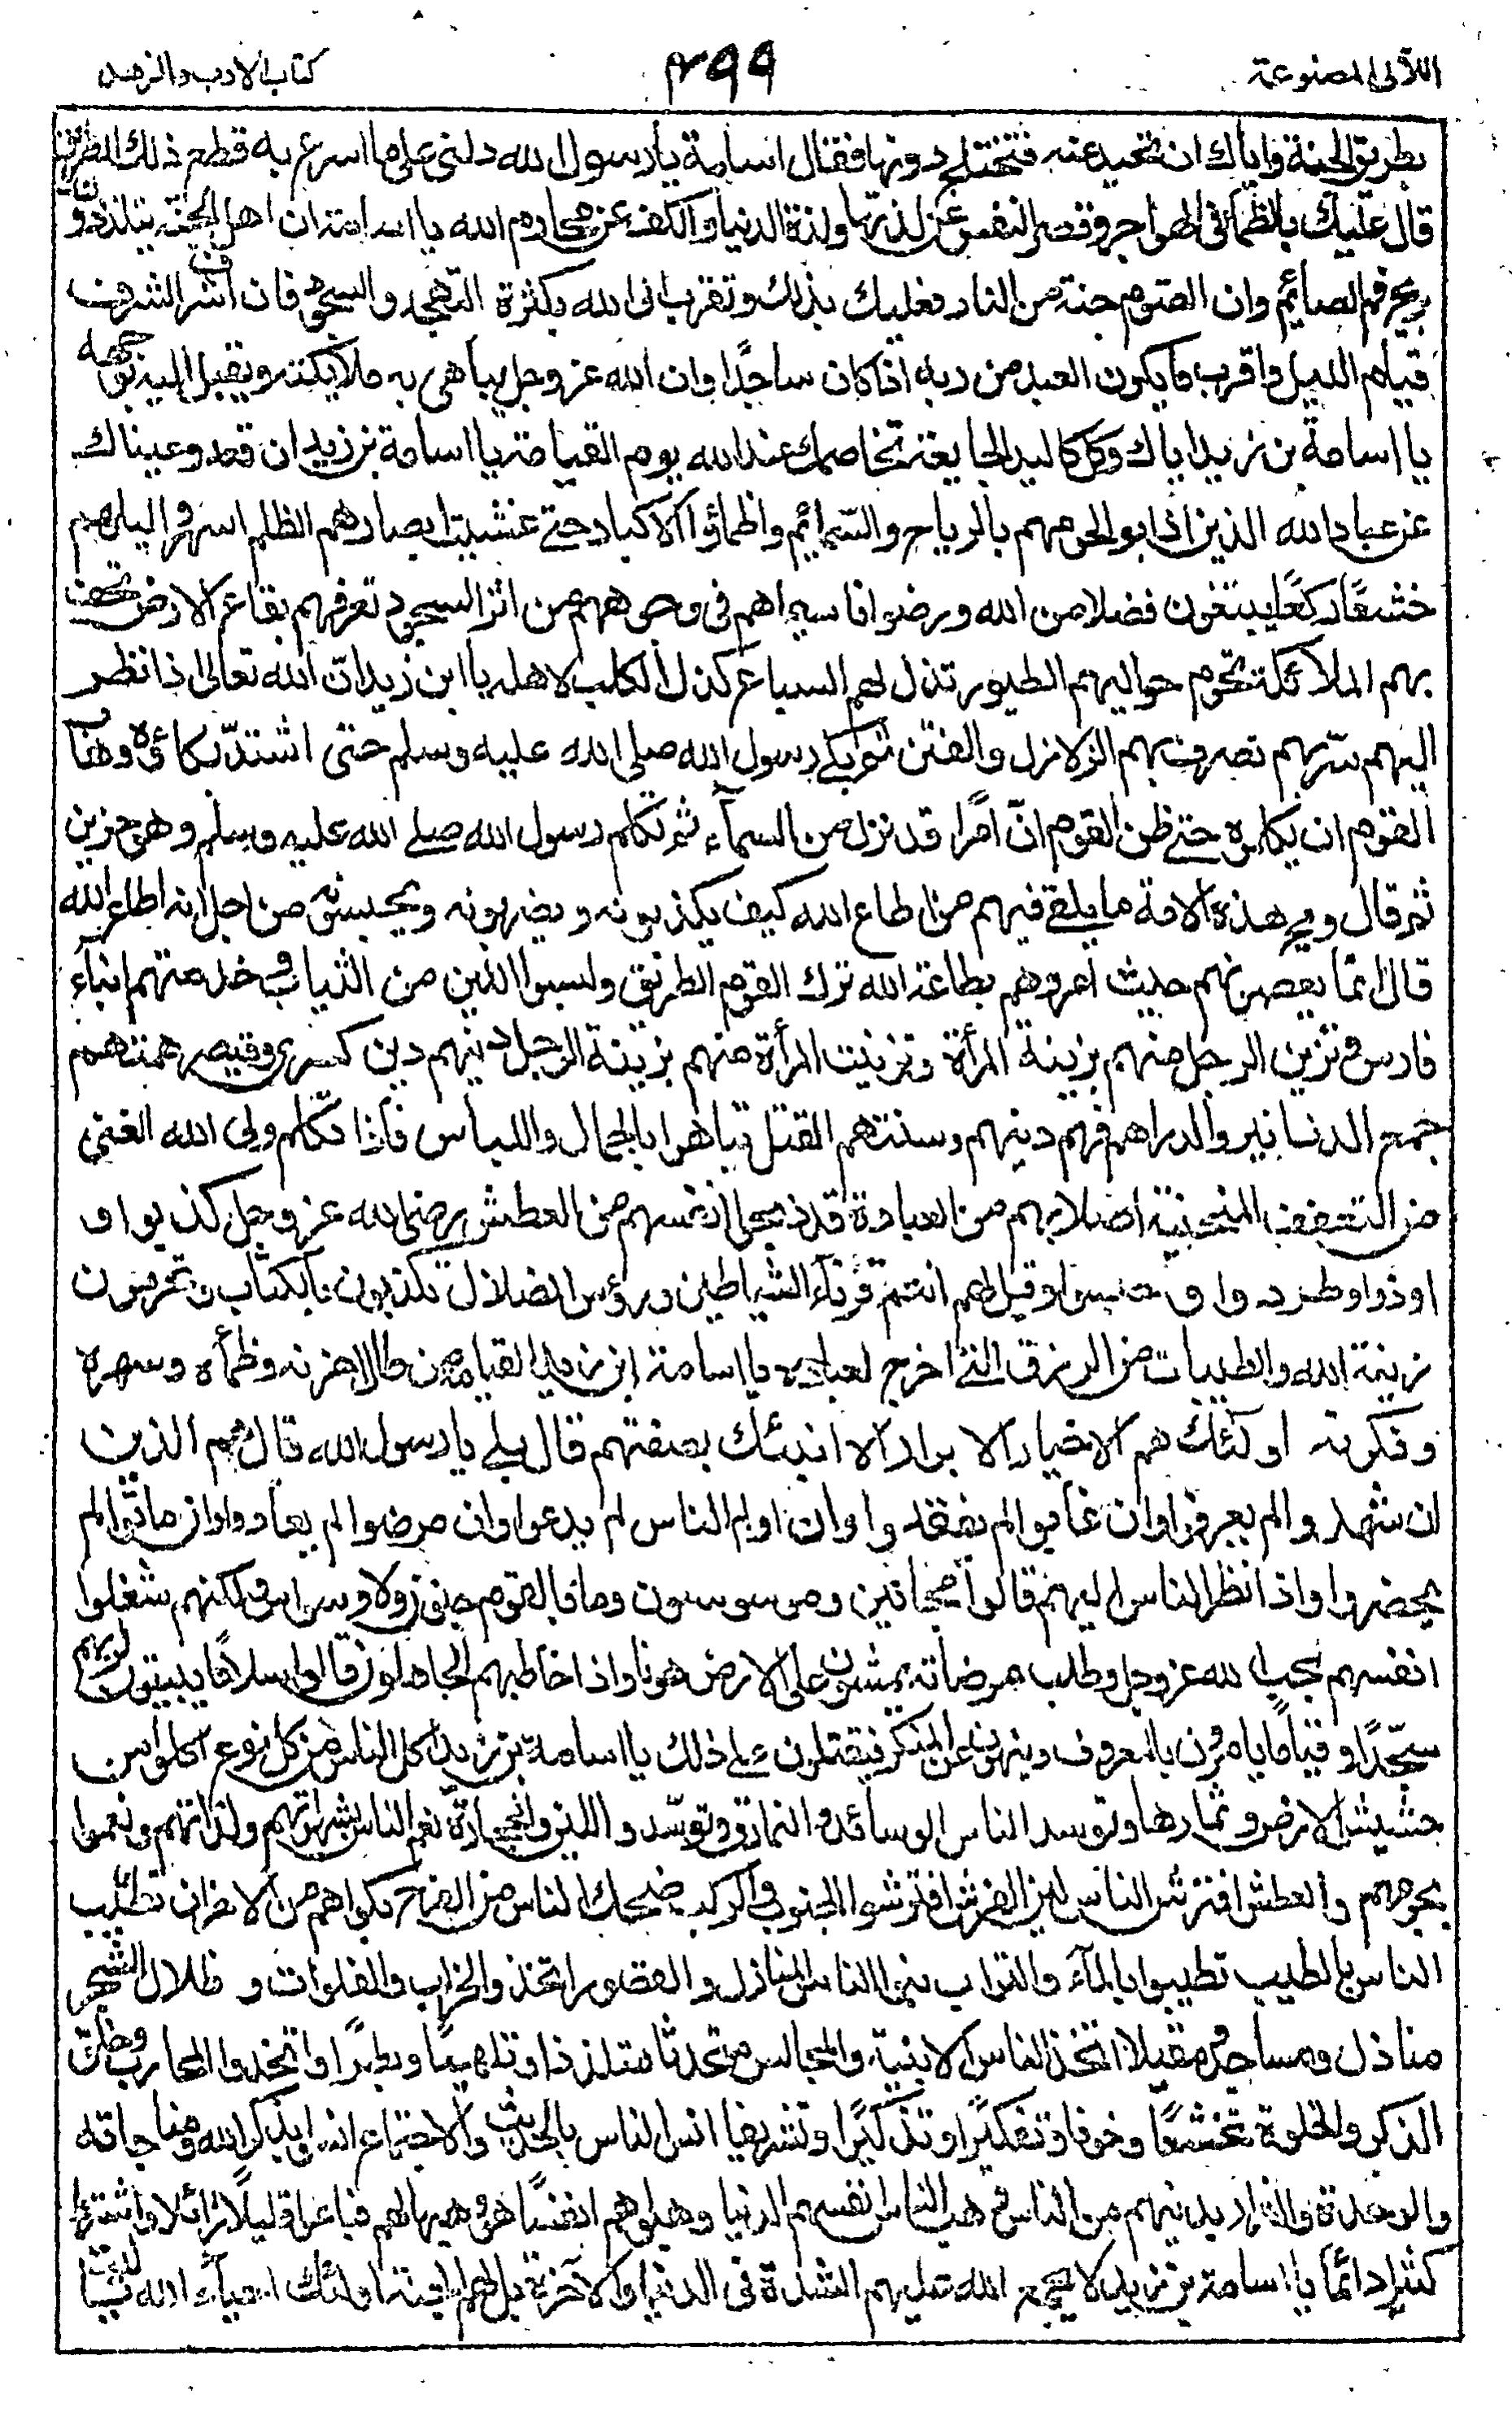 اللآلى المصنوعة
٤٩٩
كتاب الادب والزهد
بطريق الجنة واياك ان تحيد عنه فتختلج دونها فقال اسامة يا رسول الله دلنى على ما اسرع به قطع ذلك الطريق
قال عليك بالظمأ فى الهواجر وقصر النفس عن لذتها ولذة الدنيا والكف عن محارم الله يا اسامة ان اهل الجنة يتلذذون
بريح فم الصائم وان الصوم جنة من النار فعليك بذلك وتقرب الى الله بكثرة التهجد والسجود فان اشرف الشرف
قيام الليل واقرب ما يكون العبد من ربه اذا كان ساجدًا وان الله عز وجل يباهى به ملائكته ويقبل اليه بوجهه
يا اسامة بن زيد اياك وكل كبد جايعة تخاصمك عند الله يوم القيامة يا اسامة بن زيد ان تعد وعيناك
عن عباد الله الذين اذابوا لحومهم بالرياح والسمائم واظمأوا الاكباد حتى غشيت ابصارهم الظلم اسهروا ليلهم
خشعًا ركعًا يبتغون فضلا من الله ورضوانا سيماهم فى وجوههم من اثر السجود تعرفهم بقاع الارض تحف
بهم الملائكة تحوم حواليهم الطيور تذل لهم السباع كذل الكلب لاهله يا ابن زيد ان الله تعالى اذا نظر
اليهم سر بهم تصرف بهم الزلازل والفتن ثم بكى رسول الله صلى الله عليه وسلم حتى اشتد بكاؤه وهاب
القوم ان يكلموه حتى ظن القوم ان امرًا قد نزل من السماء ثم تكلم رسول الله صلى الله عليه وسلم وهو حزين
ثم قال ويح هذه الامة ما يلقى فيهم من اطاع الله كيف يكذبونه ويضربونه ويحبسونه من اجل انه اطاع الله
قال انما يعصونهم حيث امروهم بطاعة الله ترك القوم الطريق ولبسوا اللين من الثياب وخدمتهم ابناء
فارس وتزين الرجل منهم بزينة المرأة وتزينت المرأة منهم بزينة الرجل دينهم دين كسرى وقيصر همتهم
جمع الدنانير والدراهم فهم دينهم وسنتهم القتل تباهوا بالجمال واللباس فاذا تكلم ولى الله الغنى
من التعفف المنحنية اصلابهم من العبادة قد ذبحوا انفسهم من العطش برضى الله عز وجل كذبوا و
اوذوا وطردوا و حبسوا وقيل لهم انتم قرناء الشياطين ورؤس الضلال تكذبون بالكتاب وتحرمون
زينة الله والطيبات من الرزق التى اخرج لعباده يا اسامة ابن زيد القيامة من طال حزنه وظمأه وسهره
وفكرته اولئك هم الاخيار الابرار الا انبئك بصفتهم قال بلى يا رسول الله قال هم الذين
ان شهدوا لم يعرفوا وان غابوا لم يفتقدوا وان اولم الناس لم يدعوا وان مرضوا لم يعادوا وان ماتوا لم
يحضروا واذا نظر الناس اليهم قالوا مجانين وموسوسون وما بالقوم جنون ولا وسواس ولكنهم شغلوا
انفسهم بحب الله عز وجل وطلب مرضاته يمشون على الارض هونا واذا خاطبهم الجاهلون قالوا سلاما يبيتون لربهم
سجّدًا وقيامًا يامرون بالمعروف وينهون عن المنكر فيقتلون على ذلك يا اسامة بن زيد اكل الناس من كل نوع اكلوا من
حشيش الارض وثمارها وتوسد الناس الوسائد والنمارق وتوسدوا اللبن والحجارة نعم الناس بشهوتهم ولذاتهم ونعموا
بجوعهم والعطش افترش الناس لين الفرش افترشوا الجنوب والركب ضحك الناس من الفرح بكوا هم من الاحزان تطيب
الناس بالطيب تطيبوا بالماء والتراب بنى الناس المنازل والقصور اتخذوا الخراب والفلوات و ظلال الشجر
منازل ومساجد ومقيلا اتخذ الناس الابنية والمجالس متحدثا متلذذا وتلهيًا وبطرًا واتخذوا المحاريب وحلق
الذكر والخلوة تخشعًا وخوفا وتفكيرًا وتذكيرًا وتشريفا انس الناس بالحديث والاجتماع انسوا بذكر الله ومناجاته
والوحدة والفرار بدينهم من الناس وهب الناس انفسهم للدنيا وهبوا هم انفسًا هو وهبها لهم فباعوا قليلًا زائلا واشتروا
كثيرا دائما يا اسامة بن زيد لا يجمع الله عليهم الشدة فى الدنيا والآخرة بل لهم الجنة اولئك احباء الله